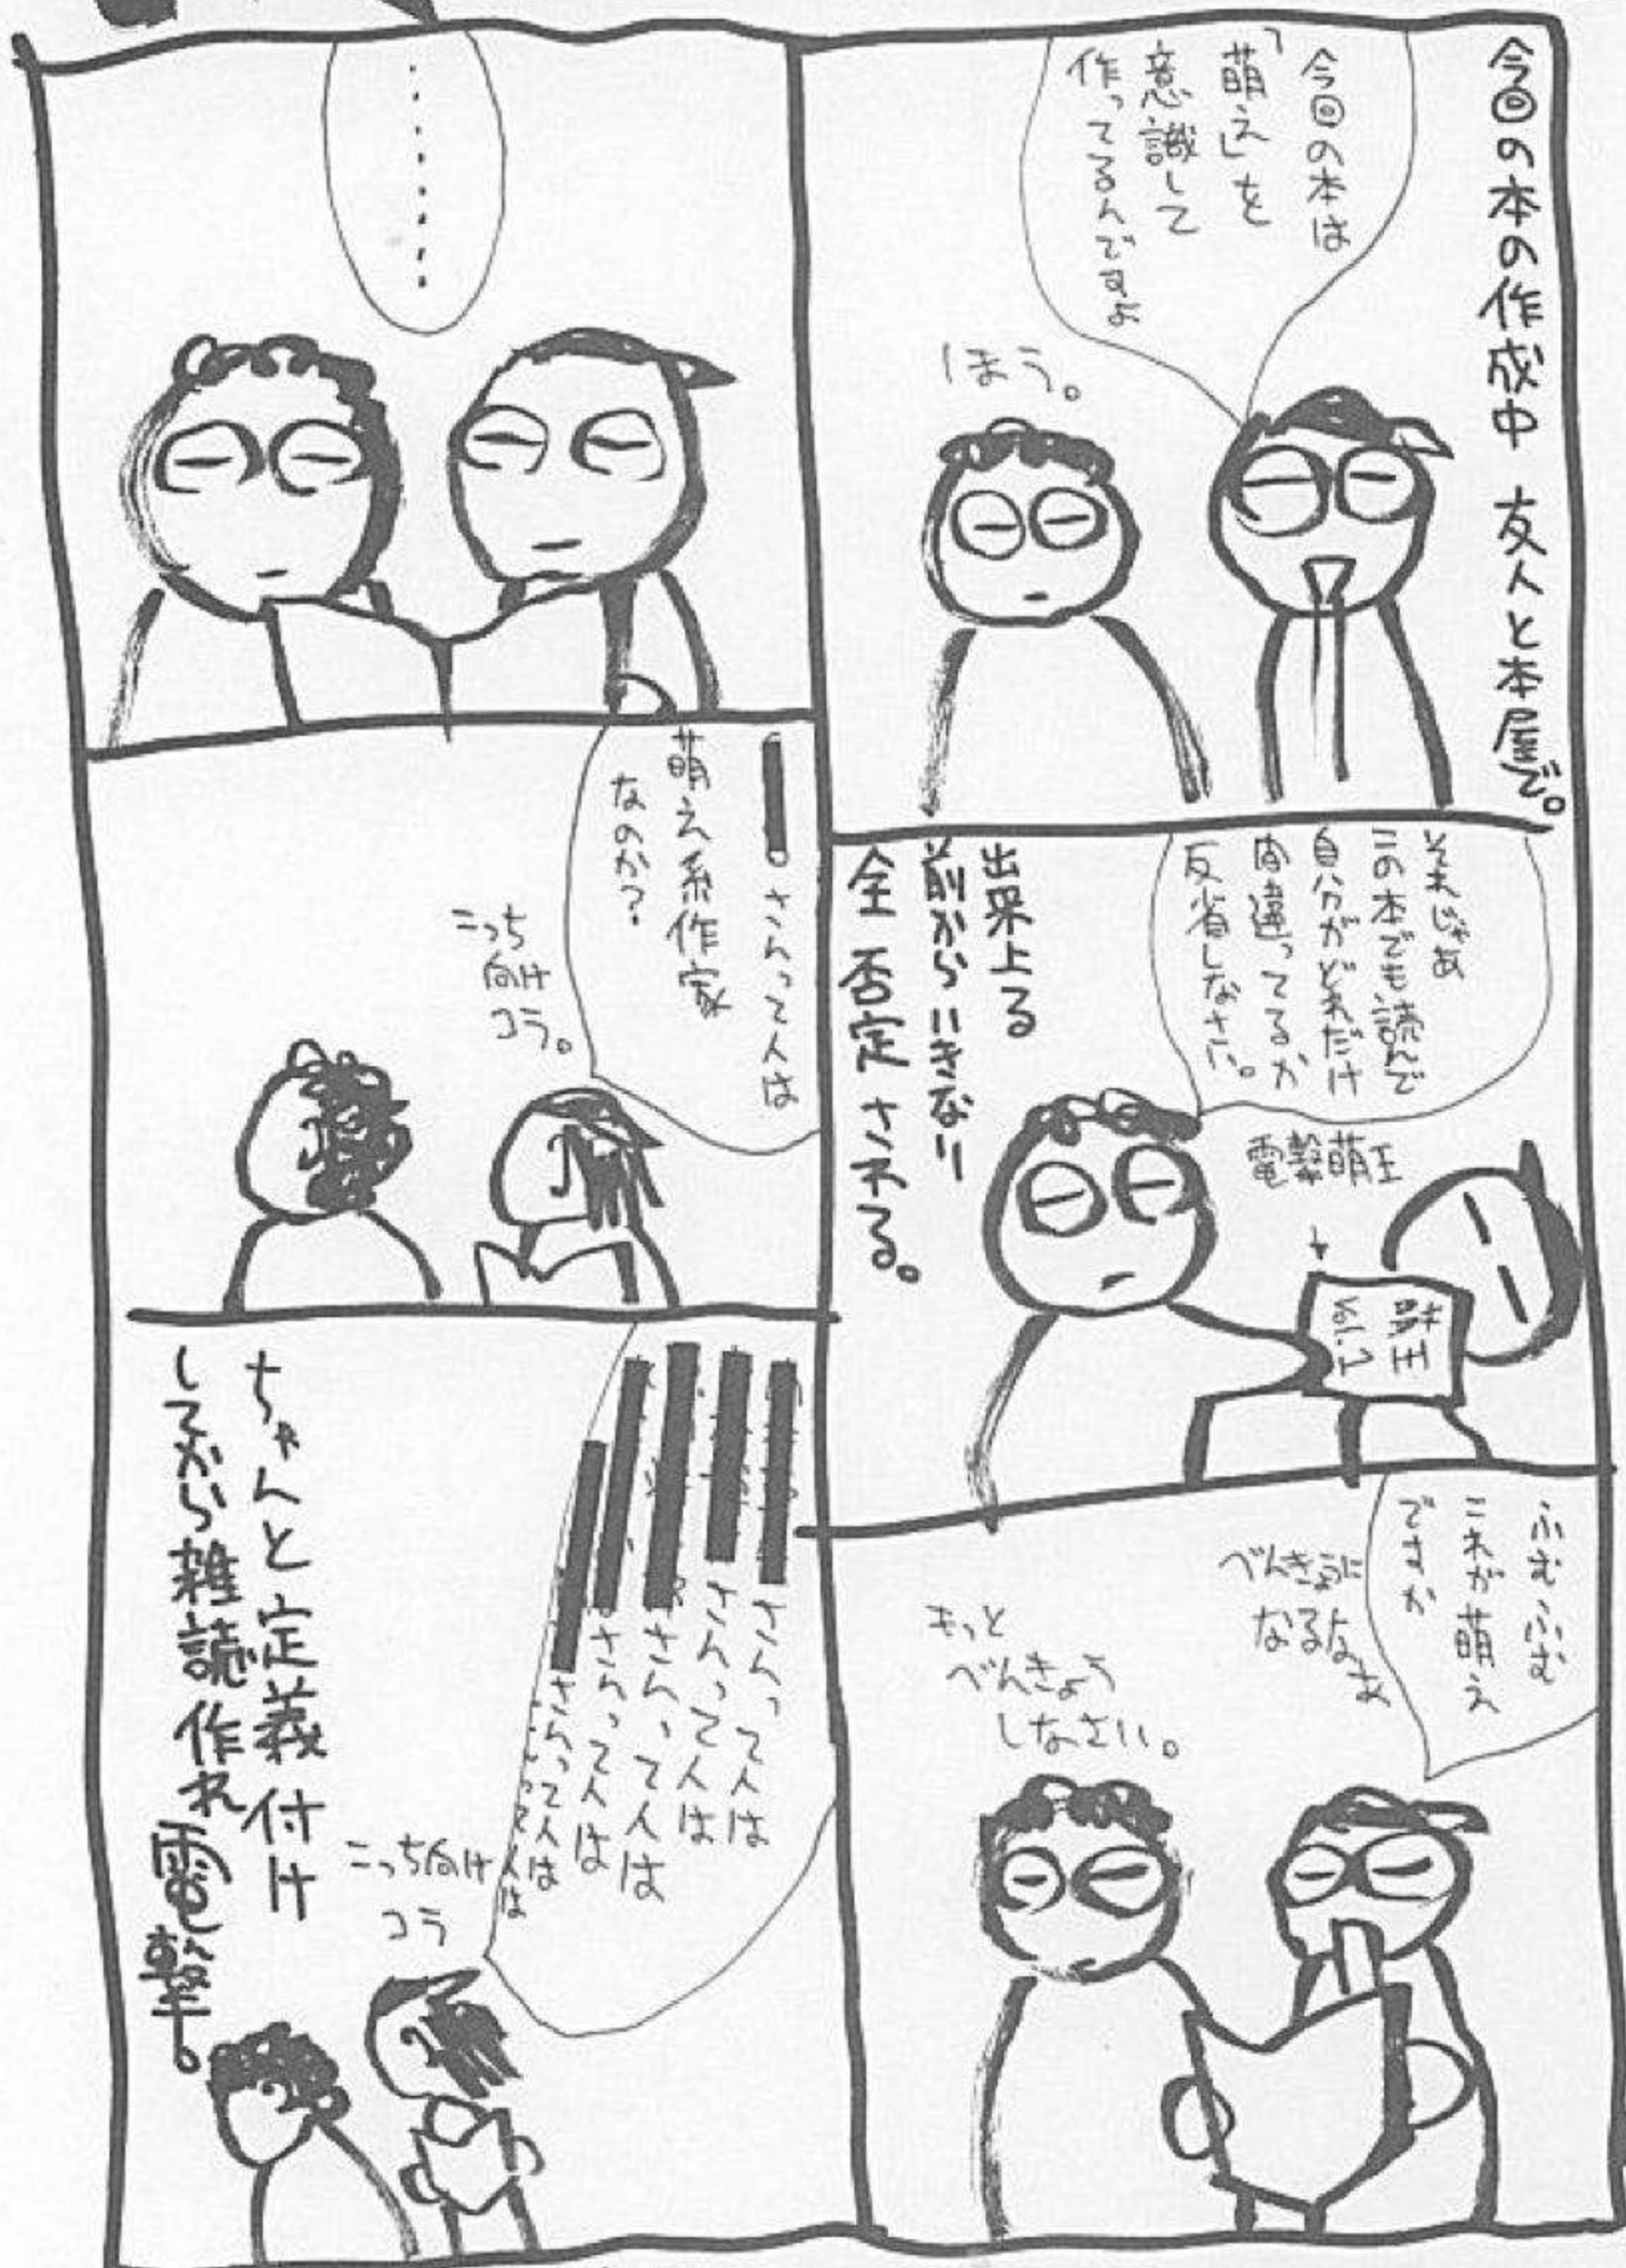 今回の本の作成中 友人と本屋で。
今回の本は
「萌え」を
意識して
作ってるんですよ
ほう。
それじゃあ
この本でも読んで
自分がどれだけ
間違ってるか
反省しなさい。
電撃萌王
萌王
Vol.2
出来上る
前からいきなり
全否定される。
ふむふむ
これが萌え
ですか
べんきょうに
なるなぁ
もっと
べんきょう
しなさい。
・・・・・・・・
さんって人は
萌え系作家
なのか?
こっち
向け
コラ。
さんって人は
さんって人は
さんって人は
さんって人は
さんって人は
って人は
こっち向け
コラ
ちゃんと定義付け
してから雑誌作れ
電撃。